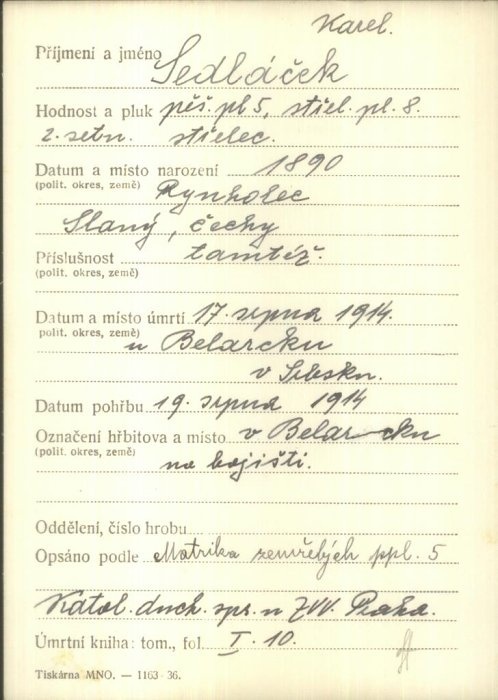 Karel.
Příjmení a jméno Sedláček
Hodnost a pluk pěš. pl 5, střel. pl. 8.
2. setn. střelec.
Datum a místo narození 1890
(polit. okres, země) Rynholec
Slaný, čechy
Příslušnost tamtéž.
(polit. okres, země)
Datum a místo úmrtí 17. srpna 1914.
polit. okres, země) u Belarcku
v Srbsku.
Datum pohřbu 19. srpna 1914
Označení hřbitova a místo v Belarcku
(polit. okres, země) na bojišti.
Oddělení, číslo hrobu
Opsáno podle Matrika zemřelých ppl. 5
Katol. duch. spr. u ZVV. Praha.
Úmrtní kniha: tom., fol. I. 10.
Tiskárna MNO. — 1163-36.